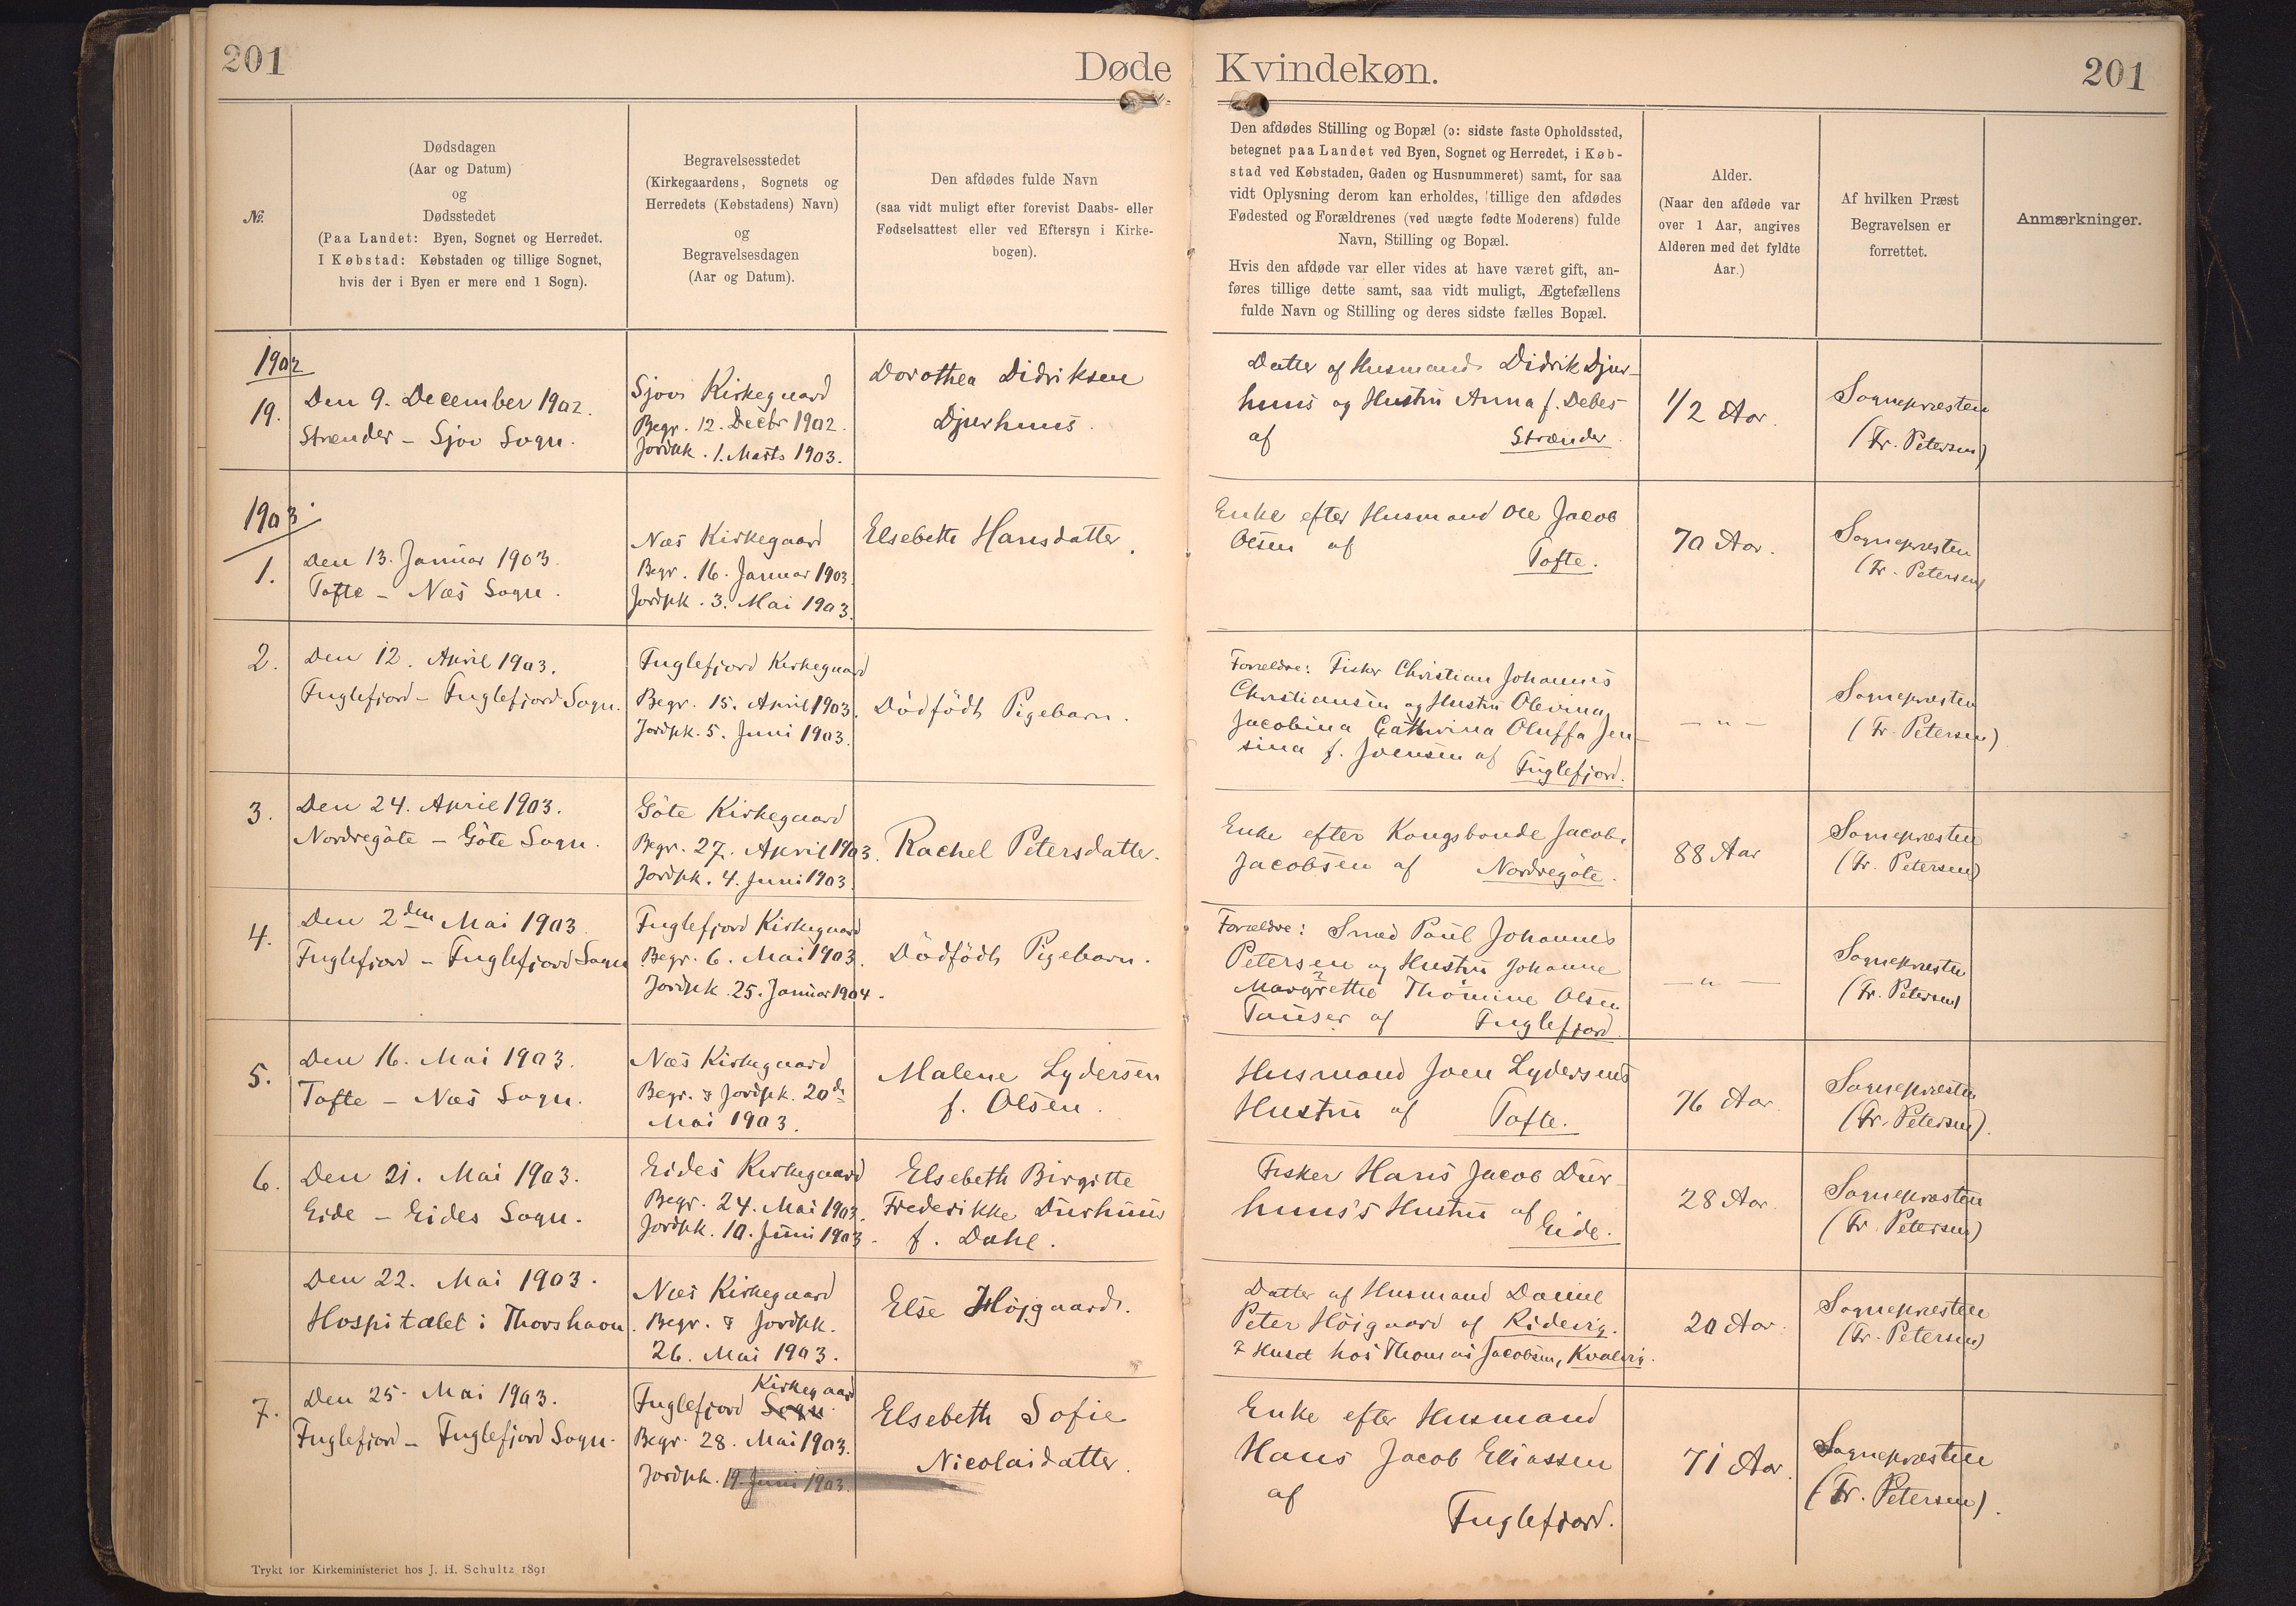 201
Døde Kvindekøn.
201
№.
Dødsdagen
(Aar og Datum)
og
Dødsstedet
(Paa Landet: Byen, Sognet og Herredet.
I Købstad: Købstaden og tillige Sognet,
hvis der i Byen er mere end 1 Sogn).
Begravelsesstedet
(Kirkegaardens, Sognets og
Herredets (Købstadens) Navn)
og
Begravelsesdagen
(Aar og Datum).
Den afdødes fulde Navn
(saa vidt muligt efter forevist Daabs- eller
Fødselsattest eller ved Eftersyn i Kirke-
bogen).
Den afdødes Stilling og Bopæl (ɔ: sidste faste Opholdssted,
betegnet paa Landet ved Byen, Sognet og Herredet, i Køb-
stad ved Købstaden, Gaden og Husnummeret) samt, for saa
vidt Oplysning derom kan erholdes, tillige den afdødes
Fødested og Forældrenes (ved uægte fødte Moderens) fulde
Navn, Stilling og Bopæl.
Hvis den afdøde var eller vides at have været gift, an-
føres tillige dette samt, saa vidt muligt, Ægtefællens
fulde Navn og Stilling og deres sidste fælles Bopæl.
Alder.
(Naar den afdøde var
over 1 Aar, angives
Alderen med det fyldte
Aar.)
Af hvilken Præst
Begravelsen er
forrettet.
Anmærkninger.
1902
19.
Den 9. December 1902.
Strænder – Sjov Sogn.
Sjov Kirkegaard
Begr. 12. Decbr 1902.
Jordpk. 1. Marts 1903.
Dorothea Didriksen
Djurhuus.
Datter af Husmand Didrik Djur-
huus og Hustru Anna f. Debes
af Strænder.
1/2 Aar.
Sognepræsten
(Fr. Petersen)
1903.
1.
Den 13. Januar 1903.
Tofte – Næs Sogn.
Næs Kirkegaard
Begr. 16. Januar 1903.
Jordpk. 3. Mai 1903.
Elsebeth Hansdatter.
Enke efter Husmand Ole Jacob
Olsen af Tofte.
70 Aar.
Sognepræsten
(Fr. Petersen)
2.
Den 12. April 1903.
Fuglefjord – Fuglefjord Sogn.
Fuglefjord Kirkegaard
Begr. 15. April 1903.
Jordpk. 5. Juni 1903.
Dödfödt Pigebarn.
Forældre: Fisker Christian Johannes
Christiansen og Hustru Olevina
Jacobina Cathrina Oluffa Jen-
sina f. Joensen af Fuglefjord.
— „ —
Sognepræsten
(Fr. Petersen)
3.
Den 24. April 1903.
Nordregöte – Göte Sogn.
Göte Kirkegaard
Begr. 27. April 1903.
Jordpk. 4. Juni 1903.
Rachel Petersdatter.
Enke efter Kongsbonde Jacob
Jacobsen af Nordregöte.
88 Aar
Sognepræsten
(Fr. Petersen)
4.
Den 2den Mai 1903
Fuglefjord – Fuglefjord Sogn
Fuglefjord Kirkegaard
Begr. 6. Mai 1903.
Jordpk. 25. Januar 1904.
Dödfödt Pigebarn.
Forældre: Smed Paul Johannes
Petersen og Hustru Johanne
Margrethe Thomine Olsen
Tausen af Fuglefjord.
— „ —
Sognepræsten
(Fr. Petersen)
5.
Den 16. Mai 1903.
Tofte – Næs Sogn.
Næs Kirkegaard
Begr. & Jordpk. 20de
Mai 1903.
Malene Lydersen
f. Olsen.
Husmand Joen Lydersens
Hustru af Tofte.
76 Aar.
Sognepræsten
(Fr. Petersen).
6.
Den 21. Mai 1903.
Eide – Eides Sogn.
Eides Kirkegaard
Begr. 24. Mai 1903.
Jordpk. 10. Juni 1903.
Elsebeth Birgitte
Frederikke Durhuus
f. Dahl.
Fisker Hans Jacob Dur-
huus's Hustru af
Eide.
28 Aar.
Sognepræsten
(Fr. Petersen)
Den 22. Mai 1903.
Hospitalet i Thorshavn.
Næs Kirkegaard
Begr. & Jordpk.
26. Mai 1903.
Else Höjgaard.
Datter af Husmand Daniel
Peter Höigaard af Ridevig.
Huset hos Thomas Jacobsen, Kvalvig.
20 Aar.
Sognepræsten
(Fr. Petersen)
7.
Den 25. Mai 1903.
Fuglefjord – Fuglefjord Sogn.
Kirkegaard
Fuglefjord Sogn
Begr. 28. Mai 1903.
Jordpk. 19. Juni 1903.
Elsebeth Sofie
Nicolaidatter.
Enke efter Husmand
Hans Jacob Eliassen
af
Fuglefjord.
71 Aar.
Sognepræsten
(Fr. Petersen).
Trykt for Kirkeministeriet hos J. H. Schultz 1891